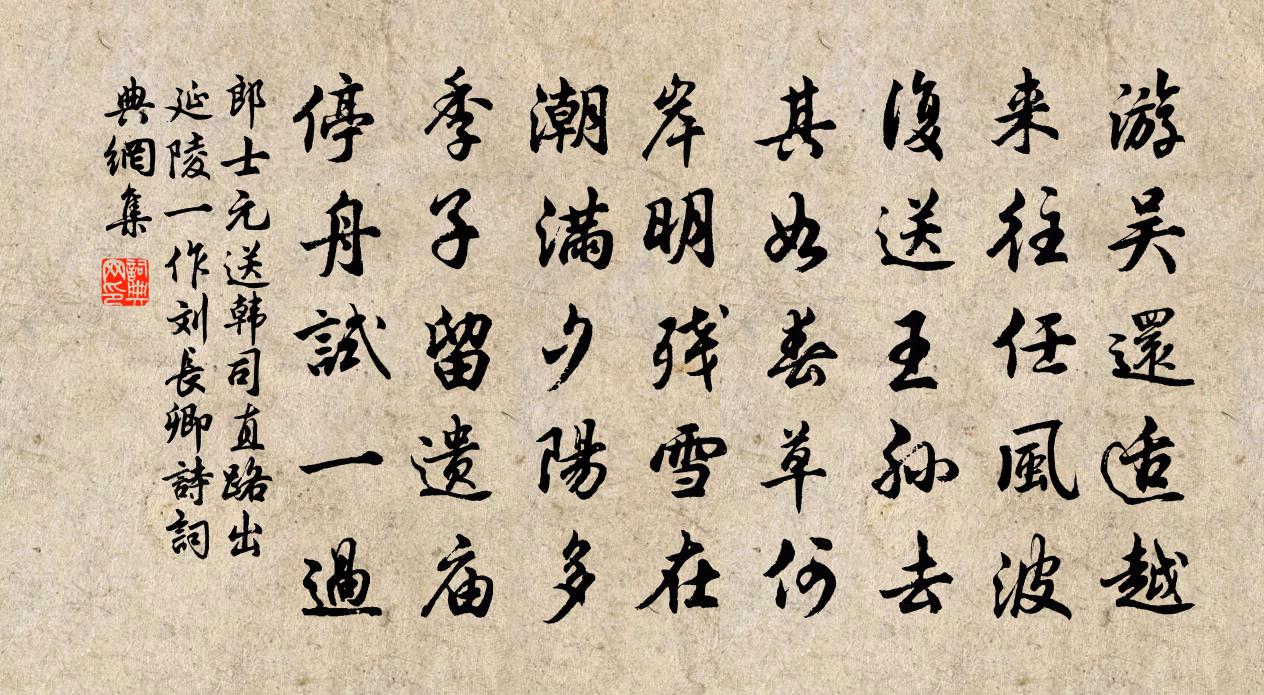 游吴還适越
来往任風波
復送王孙去
其如春草何
岸明残雪在
潮满夕陽多
季子留遗庙
停舟試一過
郎士元送韩司直路出
延陵一作刘長卿詩詞
典網集
詞典
网印